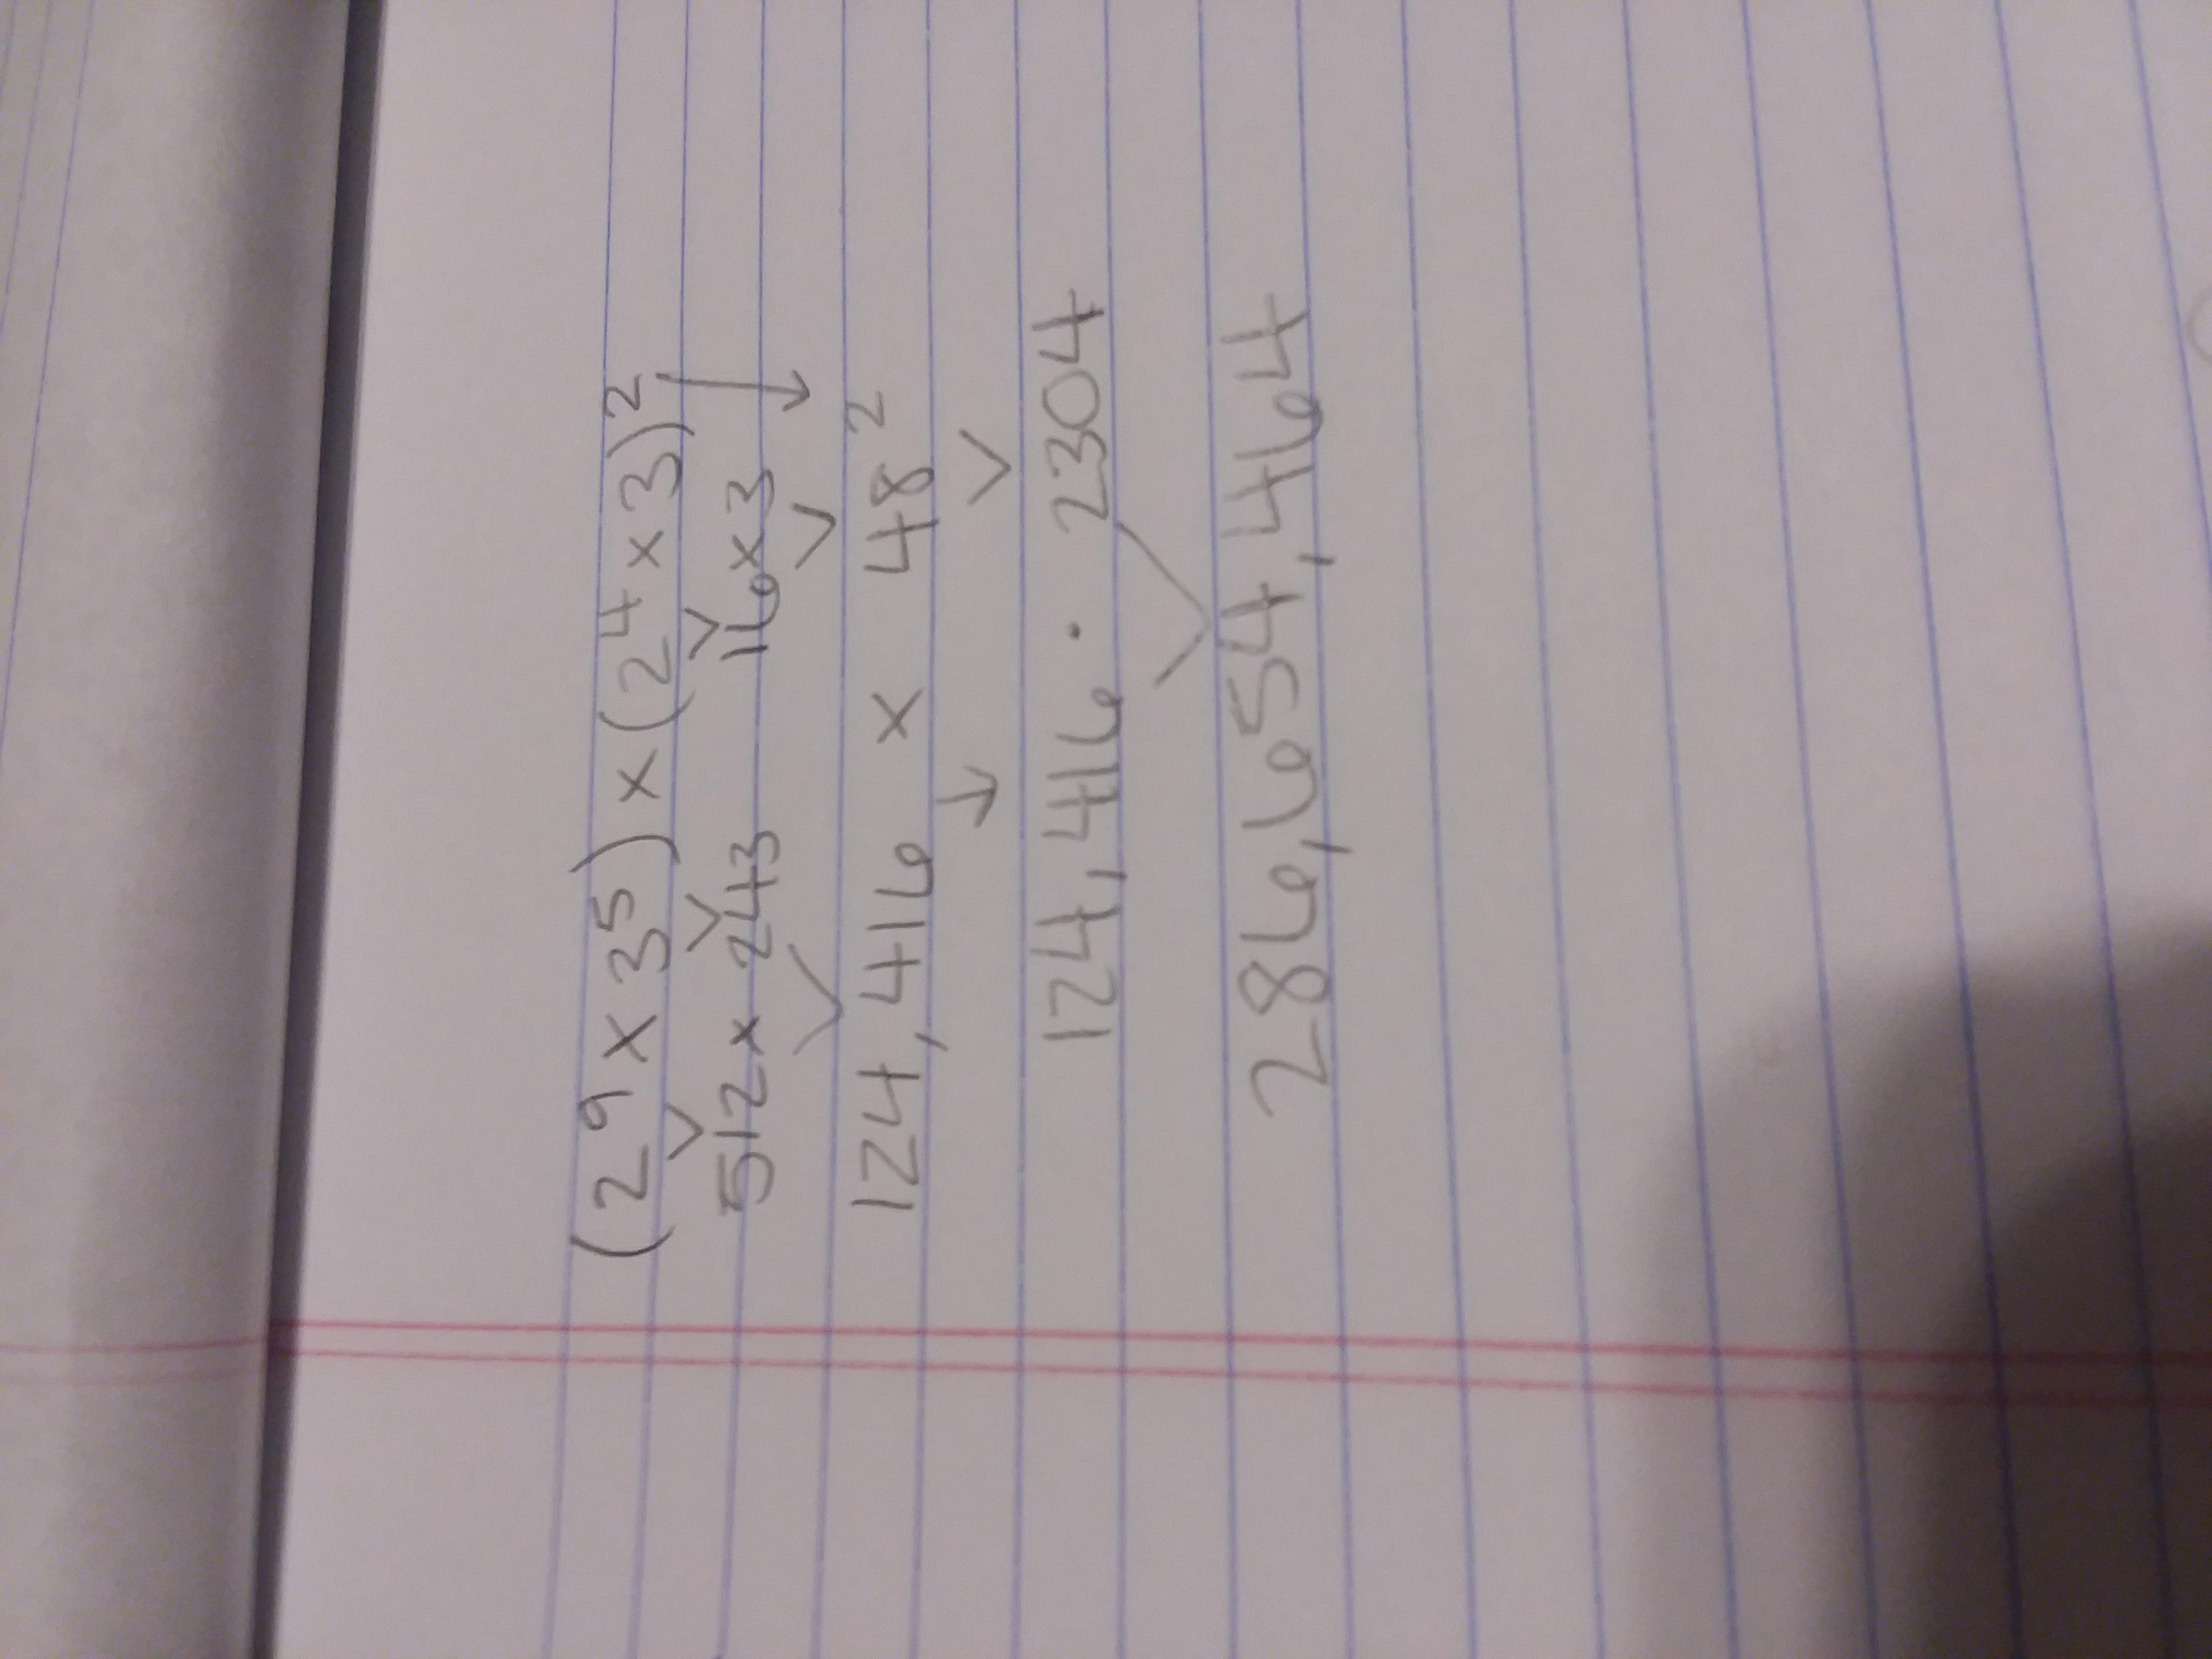 (2⁹ x 3⁵) x (2⁴ x 3)²
512 x 243 16 x 3
124,416 x 48²
124,416 · 2304
286,654,464